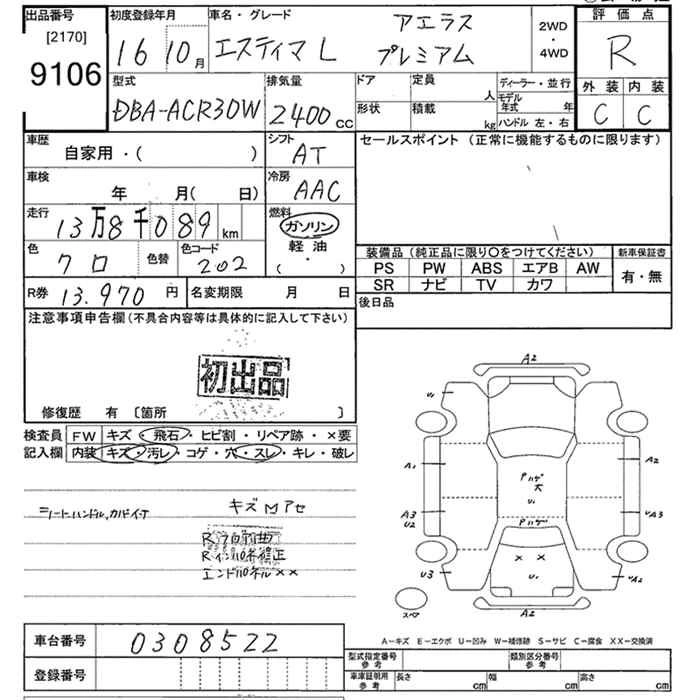 出品番号
[2170]
9106
初度登録年月
16 10月
車名・グレード
エスティマL アエラス プレミアム
2WD
・
4WD
評価点
R
外装 内装
C C
型式
DBA-ACR30W
排気量
2400 cc
ドア 定員
人
形状 積載
kg
ディーラー・並行
モデル年式 年
ハンドル 左・右
車歴
自家用・( )
シフト
AT
車検
年 月( 日)
冷房
AAC
走行
13万8千089 km
燃料
ガソリン
軽油
( ・ )
色
クロ
色替
色コード
202
R券 13.970 円
名変期限 月 日
セールスポイント (正常に機能するものに限ります)
装備品(純正品に限り○をつけてください)
PS PW ABS エアB AW
SR ナビ TV カワ
新車保証書
有・無
後日品
注意事項申告欄(不具合内容等は具体的に記入して下さい)
初出品
修復歴 有 〔箇所 〕
検査員記入欄
FW キズ・飛石・ヒビ割・リペア跡・×要
内装 キズ・汚レ・コゲ・穴・スレ・キレ・破レ
キズ M アセ
Rインパネ修正
エンドパネル××
A2
U1
A1
A2
A3
U2
Pハゲ
大
U1
Pハゲ
UA3
U3
× ×
U1
UA2
A2
スペア
A－キズ E－エクボ U－凹み W－補修跡 S－サビ C－腐食 XX－交換済
車台番号
0308522
登録番号
型式指定番号
参考
類別区分番号
参考
車庫証明用
参考
長さ cm
幅 cm
高さ cm